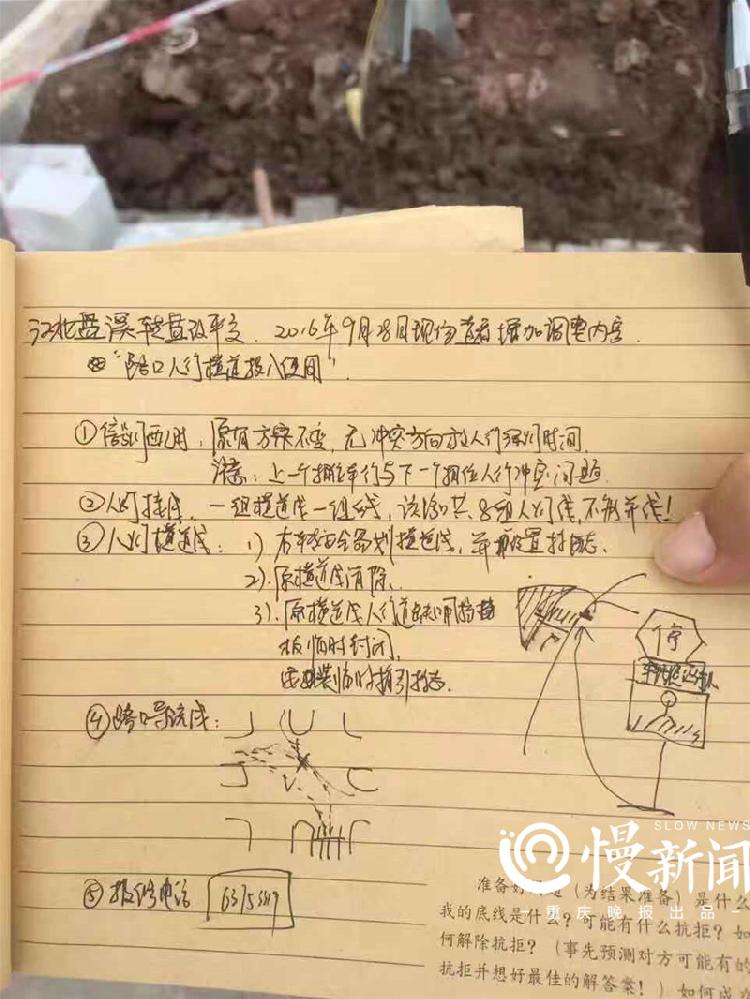 江北盘溪转盘改平交. 2016年9月28日现场查看增加调整内容.
"路口人行横道投入使用".
①信号灯配时: 原有方案不变, 无冲突方向放人行绿灯时间.
注意: 上一个相位车行与下一个相位人行冲突问题.
②人灯接线. 一组横道线一组线, 该路口共8组人灯线, 不能并线!
③人行横道线: 1) 右转安全岛划横道线, 并设置标志.
2). 原横道线消除.
3). 原横道线人行道缺口用挡
板临时封闭,
安装临时指引标志.
停
④路口导流线:
⑤报修电话
SLOW NEWS
慢新闻
重庆晚报出品
准备好 (为结果准备) 是什么
我的底线是什么? 可能有什么抗拒? 如
何解除抗拒? (事先预测对方可能有的
抗拒并想好最佳的解答案! ) 如何成